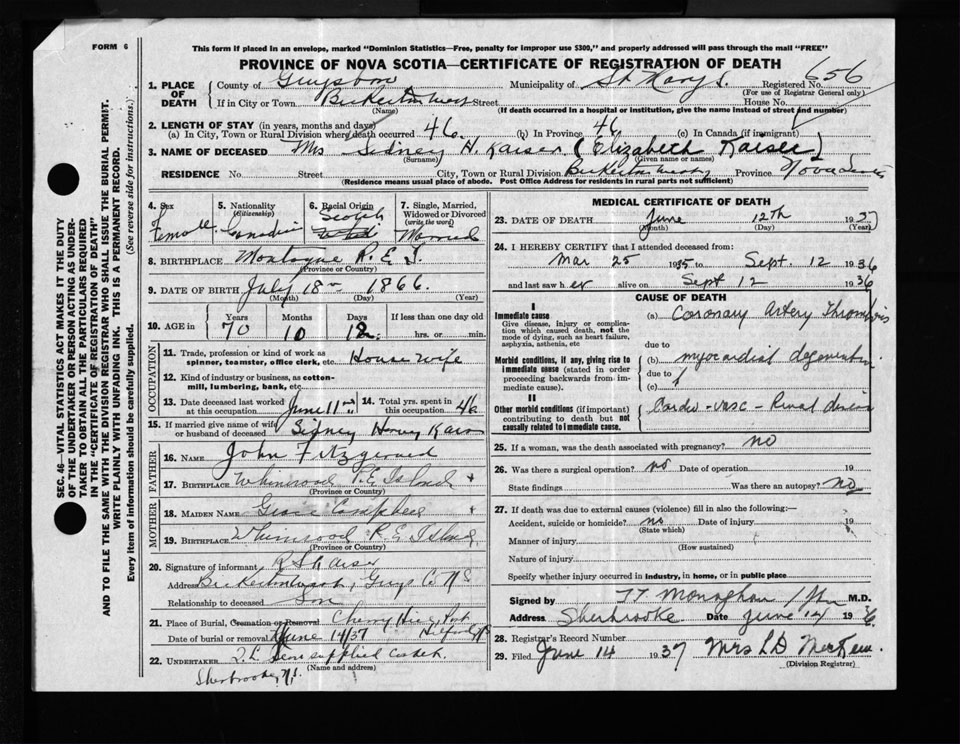 FORM 6
This form if placed in an envelope, marked "Dominion Statistics—Free, penalty for improper use $300," and properly addressed will pass through the mail "FREE"
PROVINCE OF NOVA SCOTIA—CERTIFICATE OF REGISTRATION OF DEATH
SEC. 46—VITAL STATISTICS ACT MAKES IT THE DUTY
OF THE UNDERTAKER OR PERSON ACTING AS UNDER-
TAKER TO OBTAIN ALL THE PARTICULARS REQUIRED
IN THE "CERTIFICATE OF REGISTRATION OF DEATH"
AND TO FILE THE SAME WITH THE DIVISION REGISTRAR WHO SHALL ISSUE THE BURIAL PERMIT.
WRITE PLAINLY WITH UNFADING INK. THIS IS A PERMANENT RECORD.
Every item of information should be carefully supplied. (See reverse side for instructions.)
1. PLACE OF DEATH County of Guysboro Municipality of St Mary's. Registered No. 656
(For use of Registrar General only)
If in City or Town Bickerton West Street House No.
(Name) (If death occurred in a hospital or institution, give the name instead of street and number)
2. LENGTH OF STAY (in years, months and days)
(a) In City, Town or Rural Division where death occurred 46. (b) In Province 46 (c) In Canada (if immigrant)
3. NAME OF DECEASED Mrs Sidney H. Kaiser (Elizabeth Kaiser)
(Surname) (Given name or names)
RESIDENCE No. Street City, Town or Rural Division Bickerton West Province Nova Scotia
(Residence means usual place of abode. Post Office Address for residents in rural parts not sufficient)
4. Sex Female
5. Nationality (Citizenship) Canadian
6. Racial Origin Scotch
7. Single, Married, Widowed or Divorced (write the word) Married
8. BIRTHPLACE Montague P.E.I.
(Province or Country)
9. DATE OF BIRTH July 18 1866.
(Month) (Day) (Year)
10. AGE in Years 70 Months 10 Days 12 If less than one day old hrs. or min.
OCCUPATION
11. Trade, profession or kind of work as spinner, teamster, office clerk, etc. House wife
12. Kind of industry or business, as cotton-mill, lumbering, bank, etc.
13. Date deceased last worked at this occupation June 11 14. Total yrs. spent in this occupation 46
15. If married give name of wife or husband of deceased Sidney Kaiser
FATHER
16. NAME John Fitzgerald
17. BIRTHPLACE P.E. Island
(Province or Country)
MOTHER
18. MAIDEN NAME Campbell
19. BIRTHPLACE P.E. Island,
(Province or Country)
20. Signature of informant Kaiser
Address Bickerton West, Guys Co NS
Relationship to deceased Son
21. Place of Burial, Cremation or Removal Cherry Hill, Port
Date of burial or removal June 14/37
22. UNDERTAKER supplied casket
(Name and address)
Sherbrooke, N.S.
MEDICAL CERTIFICATE OF DEATH
23. DATE OF DEATH June 12th 1937
(Month) (Day) (Year)
24. I HEREBY CERTIFY that I attended deceased from:
Mar 25 1935 to Sept. 12 1936
and last saw her alive on Sept 12 1936
CAUSE OF DEATH
I
Immediate cause
Give disease, injury or complication which caused death, not the mode of dying, such as heart failure, asphyxia, asthenia, etc
(a) Coronary Artery Thrombosis
due to
Morbid conditions, if any, giving rise to immediate cause (stated in order proceeding backwards from immediate cause).
(b) myocardial degeneration
due to
(c)
II
Other morbid conditions (if important) contributing to death but not causally related to immediate cause.
Cardio-vasc-Renal disease
25. If a woman, was the death associated with pregnancy? no
26. Was there a surgical operation? no Date of operation 19
State findings Was there an autopsy? no
27. If death was due to external causes (violence) fill in also the following:—
Accident, suicide or homicide? no Date of injury 19
(State which)
Manner of injury
(How sustained)
Nature of injury
Specify whether injury occurred in industry, in home, or in public place
Signed by Monaghan M.D.
Address Sherbrooke Date June 14 19
28. Registrar's Record Number
29. Filed June 14 1937 Mrs L D
(Division Registrar)